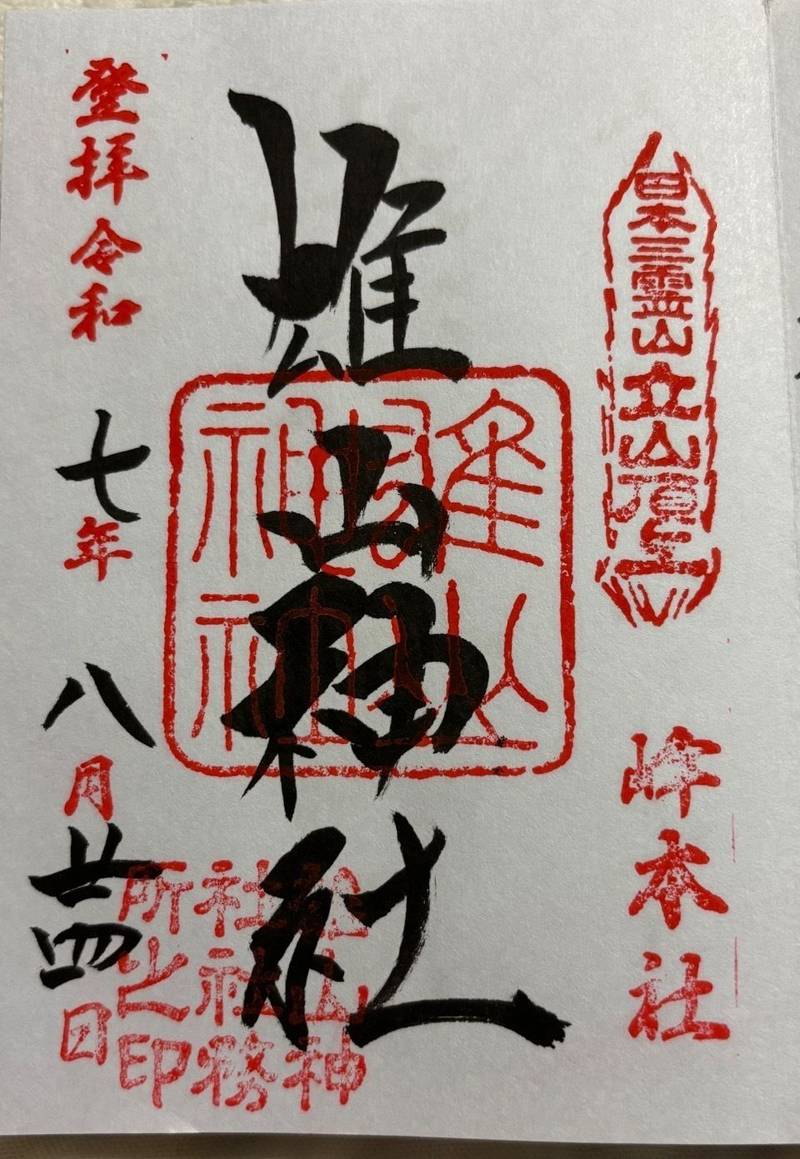 日本三霊山立山頂上
峰本社
雄山神社
雄山
神社
雄山神
社社務
所之印
登拝令和七年八月廿四日